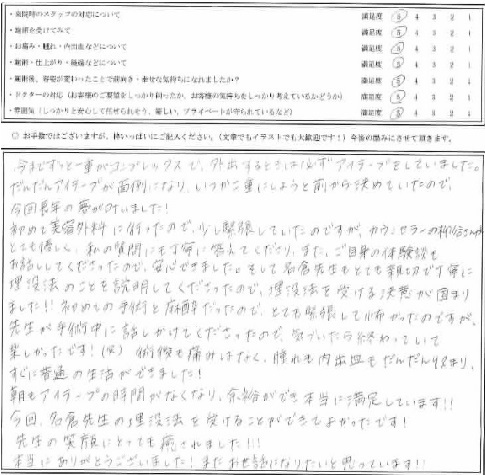 ・来院時のスタッフの対応について 満足度 5 4 3 2 1
・施術を受けてみて 満足度 5 4 3 2 1
・お痛み・腫れ・内出血などについて 満足度 5 4 3 2 1
・施術・仕上がり・経過などについて 満足度 5 4 3 2 1
・施術後、容姿が変わったことで前向き・幸せな気持ちになれましたか？ 満足度 5 4 3 2 1
・ドクターの対応（お客様のご要望をしっかり伺ったか、お客様の気持ちをしっかり考えているかどうか） 満足度 5 4 3 2 1
・雰囲気（しっかりと安心して任せられそう、優しい、プライベートが守られているなど） 満足度 5 4 3 2 1
◎ お手数ではございますが、枠いっぱいにご記入ください。（文章でもイラストでも大歓迎です！）今後の励みにさせて頂きます。
今までずっと一重がコンプレックスで、外出するときは必ずアイテープをしていました。
だんだんアイテープが面倒になり、いつか二重にしようと前から決めていたので、
今回長年の夢が叶いました！
初めて美容外科に行ったので、少し緊張していたのですが、カウンセラーの
とても優しく、私の質問にも丁寧に答えてくださり、また、ご自身の体験談も
お話ししてくださったので、安心できました。そして名倉先生もとても親切で丁寧に
埋没法のことを説明してくださったので、埋没法を受ける決意が固まり
ました!! 初めての手術と麻酔だったので、とても緊張して怖かったのですが、
先生が手術中に話しかけてくださったので、気づいたら終わっていて
楽しかったです！(笑) 術後も痛みはなく、腫れも内出血もだんだん治まり、
すぐに普通の生活ができました！
朝もアイテープの時間がなくなり、余裕ができ本当に満足しています!!
今回、名倉先生の埋没法を受けることができてよかったです！
先生の笑顔にとっても癒されました!!!
本当にありがとうございました！またお世話になりたいと思っています!!